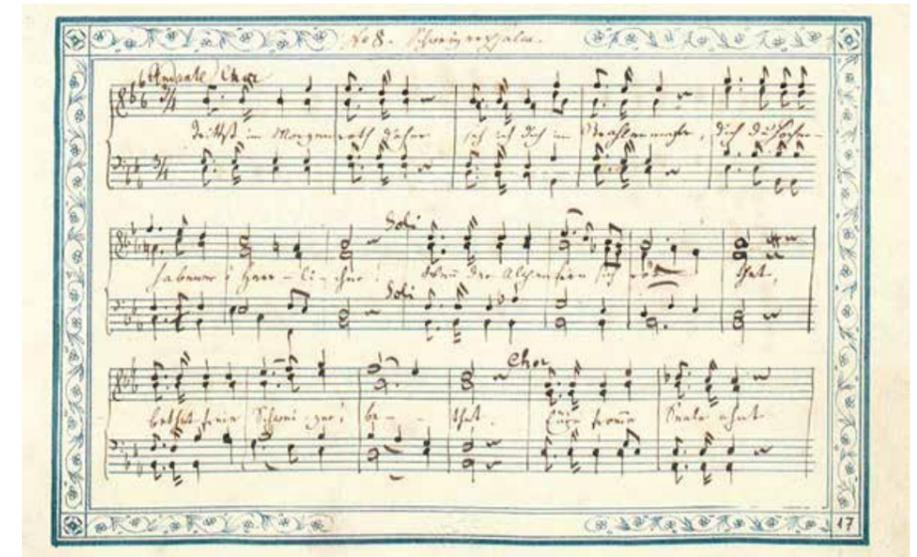 No 8. Schweizerpsalm.
Andante Chor
Trittst im Morgenroth daher seh ich dich im Strahlenmeer, dich du Hocher-
Soli
habener! Herr-li-cher! Wenn der Alpenfirn sich röthet,
Soli
Chor
bethet, freie Schwei-zer! be-thet. Eure fromme Seele ahnt
17